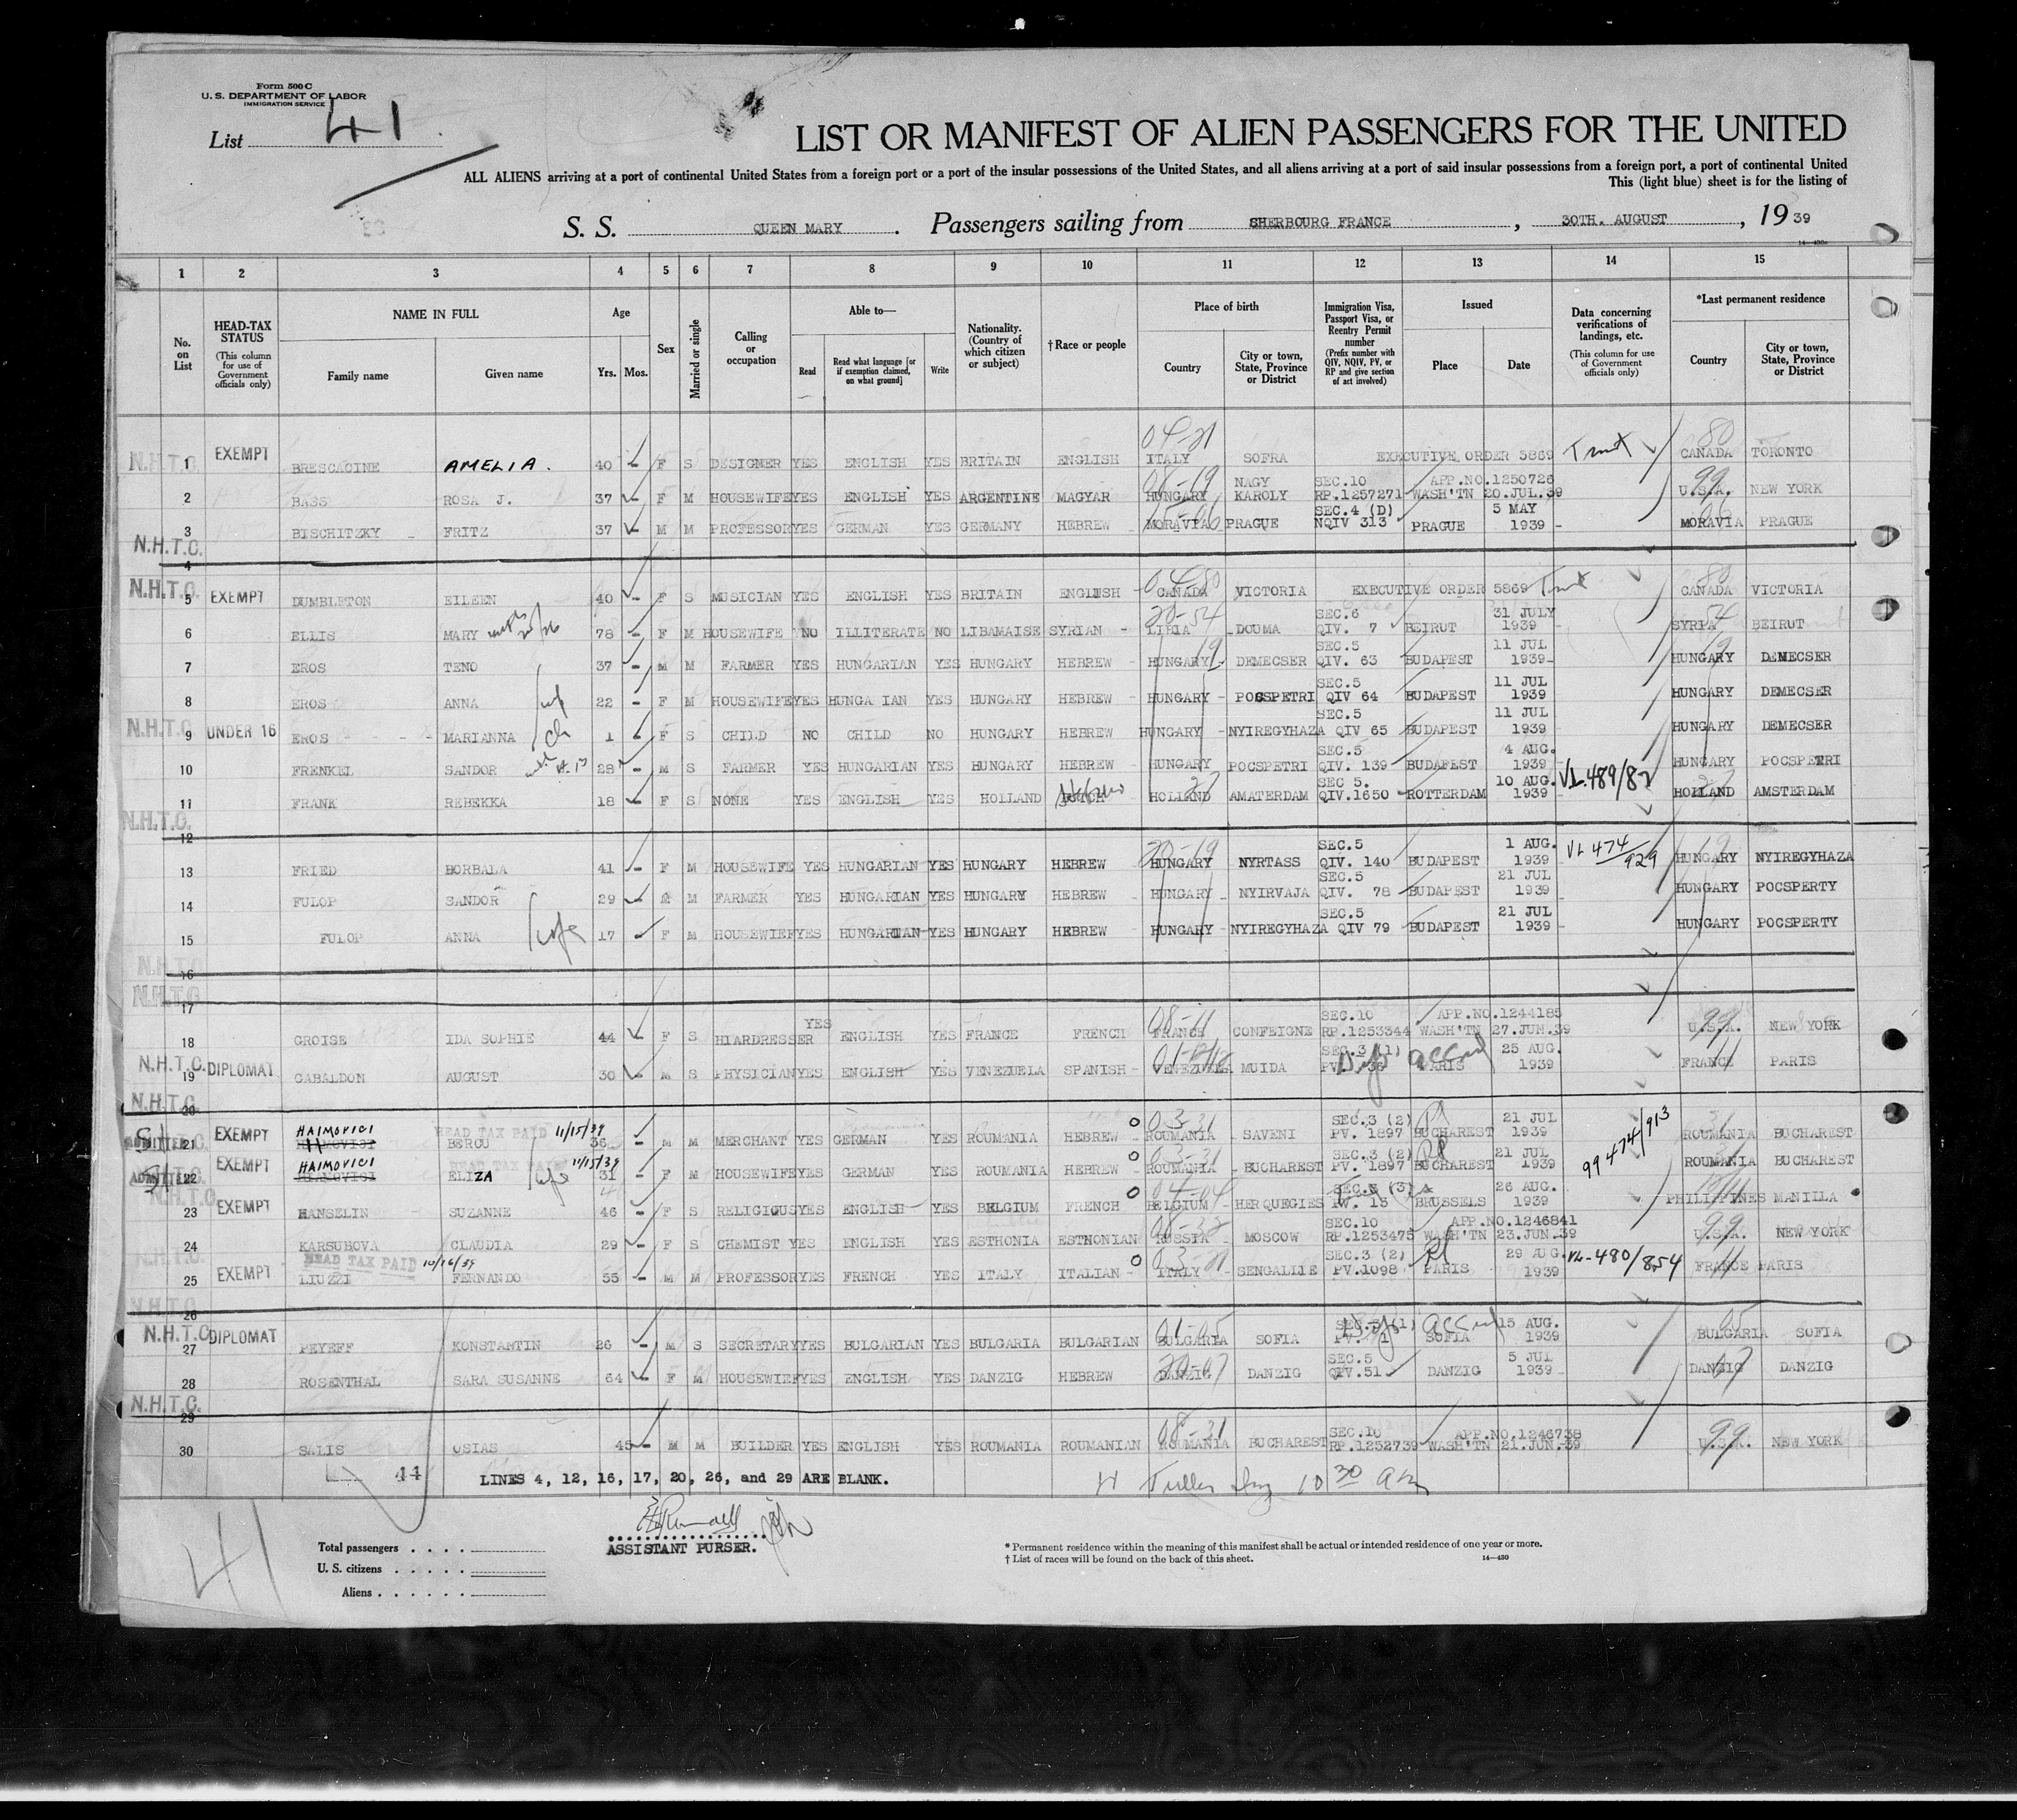 Form 500 C
U. S. DEPARTMENT OF LABOR
IMMIGRATION SERVICE
List 41
LIST OR MANIFEST OF ALIEN PASSENGERS FOR THE UNITED
ALL ALIENS arriving at a port of continental United States from a foreign port or a port of the insular possessions of the United States, and all aliens arriving at a port of said insular possessions from a foreign port, a port of continental United
This (light blue) sheet is for the listing of
S. S. QUEEN MARY . Passengers sailing from SHERBOURG FRANCE , 30TH. AUGUST , 19 39
14—430a
1 2 3 4 5 6 7 8 9 10 11 12 13 14 15
No. on List
HEAD-TAX STATUS (This column for use of Government officials only)
NAME IN FULL
Family name Given name
Age
Yrs. Mos.
Sex
Married or single
Calling or occupation
Able to—
Read
Read what language [or if exemption claimed, on what ground]
Write
Nationality. (Country of which citizen or subject)
†Race or people
Place of birth
Country
City or town, State, Province or District
Immigration Visa, Passport Visa, or Reentry Permit number (Prefix number with QIV, NQIV, PV, or RP and give section of act involved)
Issued
Place Date
Data concerning verifications of landings, etc. (This column for use of Government officials only)
*Last permanent residence
Country
City or town, State, Province or District
N.H.T.C. 1 EXEMPT BRESCACINE AMELIA. 40 F S DESIGNER YES ENGLISH YES BRITAIN ENGLISH 04-21 ITALY SOFRA EXECUTIVE ORDER 5869 Trnst 80 CANADA TORONTO
2 BASS ROSA J. 37 F M HOUSEWIFE YES ENGLISH YES ARGENTINE MAGYAR 08-19 HUNGARY NAGY KAROLY SEC.10 RP.1257271 WASH'TN APP.NO.1250726 20.JUL.39 99 U.S.A. NEW YORK
3 BISCHITZKY FRITZ 37 M M PROFESSOR YES GERMAN YES GERMANY HEBREW MORAVIA PRAGUE SEC.4 (D) NQIV 313 PRAGUE 5 MAY 1939 MORAVIA PRAGUE
N.H.T.C. 4
N.H.T.C. 5 EXEMPT DUMBLETON EILEEN 40 F S MUSICIAN YES ENGLISH YES BRITAIN ENGLISH 04-80 CANADA VICTORIA EXECUTIVE ORDER 5869 Trnst 80 CANADA VICTORIA
6 ELLIS MARY 78 F M HOUSEWIFE NO ILLITERATE NO LIBAMAISE SYRIAN 20-54 LIBIA DOUMA SEC.6 QIV. 7 BEIRUT 31 JULY 1939 54 SYRIA BEIRUT
7 EROS TENO 37 M M FARMER YES HUNGARIAN YES HUNGARY HEBREW HUNGARY 19 DEMECSER SEC.5 QIV. 63 BUDAPEST 11 JUL 1939 19 HUNGARY DEMECSER
8 EROS ANNA wf 22 F M HOUSEWIFE YES HUNGA IAN YES HUNGARY HEBREW HUNGARY POCSPETRI SEC.5 QIV 64 BUDAPEST 11 JUL 1939 HUNGARY DEMECSER
N.H.T.C. 9 UNDER 16 EROS MARIANNA ch 1 F S CHILD NO CHILD NO HUNGARY HEBREW HUNGARY NYIREGYHAZA SEC.5 QIV 65 BUDAPEST 11 JUL 1939 HUNGARY DEMECSER
10 FRENKEL SANDOR 28 M S FARMER YES HUNGARIAN YES HUNGARY HEBREW HUNGARY POCSPETRI SEC.5 QIV. 139 BUDAPEST 4 AUG. 1939 HUNGARY POCSPETRI
11 FRANK REBEKKA 18 F S NONE YES ENGLISH YES HOLLAND DUTCH Hebrew HOLLAND 27 AMATERDAM SEC 5. QIV.1650 ROTTERDAM 10 AUG. 1939 VL.489/82 27 HOLLAND AMSTERDAM
N.H.T.C. 12
13 FRIED BORBALA 41 F M HOUSEWIFE YES HUNGARIAN YES HUNGARY HEBREW 20-19 HUNGARY NYRTASS SEC.5 QIV. 140 BUDAPEST 1 AUG. 1939 VL 474/929 19 HUNGARY NYIREGYHAZA
14 FULOP SANDOR 29 M M FARMER YES HUNGARIAN YES HUNGARY HEBREW HUNGARY NYIRVAJA SEC.5 QIV. 78 BUDAPEST 21 JUL 1939 HUNGARY POCSPERTY
15 FULOP ANNA wife 17 F M HOUSEWIEF YES HUNGARIAN YES HUNGARY HEBREW HUNGARY NYIREGYHAZA SEC.5 QIV 79 BUDAPEST 21 JUL 1939 HUNGARY POCSPERTY
N.H.T.C 16
N.H.T.C 17
18 GROISE IDA SOPHIE 44 F S HIARDRESSER YES ENGLISH YES FRANCE FRENCH 08-11 FRANCE CONFEIGNE SEC.10 RP.1253344 WASH'TN APP.NO.1244185 27.JUN.39 99 U.S.A. NEW YORK
N.H.T.C. 19 DIPLOMAT GABALDON AUGUST 30 M S PHYSICIAN YES ENGLISH YES VENEZUELA SPANISH VENEZUELA MUIDA SEC.3 (1) PARIS 25 AUG. 1939 11 FRANCE PARIS
N.H.T.C. 20
ADMITTED 21 EXEMPT HAIMOVICI HEAD TAX PAID 11/15/39 BERCU 36 M M MERCHANT YES GERMAN YES ROUMANIA HEBREW 03-31 ROUMANIA SAVENI SEC.3 (2) PV. 1897 BUCHAREST 21 JUL 1939 99474/913 31 ROUMANIA BUCHAREST
ADMITTED 22 EXEMPT HAIMOVICI HEAD TAX PAID 11/15/39 ELIZA wife 31 F M HOUSEWIFE YES GERMAN YES ROUMANIA HEBREW 03-31 ROUMANIA BUCHAREST SEC.3 (2) PV. 1897 BUCHAREST 21 JUL 1939 ROUMANIA BUCHAREST
N.H.T.C. 23 EXEMPT HANSELIN SUZANNE 46 F S RELIGIOUS YES ENGLISH YES BELGIUM FRENCH 04-04 BELGIUM HERQUEGIES PV. 13 BRUSSELS 26 AUG. 1939 PHILIPPINES MANILLA
24 KARSUHOVA CLAUDIA 29 F S CHEMIST YES ENGLISH YES ESTHONIA ESTHONIAN RUSSIA MOSCOW SEC.10 RP.1253475 WASH'TN APP.NO.1246841 23.JUN.39 99 U.S.A. NEW YORK
N.H.T.C. 25 EXEMPT HEAD TAX PAID 10/16/39 LIUZZI FERNANDO 55 M M PROFESSOR YES FRENCH YES ITALY ITALIAN 03-21 ITALY SENGALLIE SEC.3 (2) PV.1098 PARIS 29 AUG. 1939 VL-480/854 11 FRANCE PARIS
N.H.T.C. 26
N.H.T.C 27 DIPLOMAT PEYEFF KONSTANTIN 26 M S SECRETARY YES BULGARIAN YES BULGARIA BULGARIAN 01-05 BULGARIA SOFIA SEC.3 (1) PV. 1 SOFIA 15 AUG. 1939 05 BULGARIA SOFIA
28 ROSENTHAL SARA SUSANNE 64 F M HOUSEWIEF YES ENGLISH YES DANZIG HEBREW 20-67 DANZIG DANZIG SEC.5 QIV.51 DANZIG 5 JUL 1939 67 DANZIG DANZIG
N.H.T.C. 29
30 SALIS OSIAS 45 M M BUILDER YES ENGLISH YES ROUMANIA ROUMANIAN 08-31 ROUMANIA BUCHAREST SEC.10 RP.1252739 WASH'TN APP.NO.1246738 21.JUN.39 99 U.S.A. NEW YORK
44 LINES 4, 12, 16, 17, 20, 26, and 29 ARE BLANK.
10 30 am
ASSISTANT PURSER.
41
Total passengers . . . .
U. S. citizens . . . . .
Aliens . . . . . .
* Permanent residence within the meaning of this manifest shall be actual or intended residence of one year or more.
† List of races will be found on the back of this sheet. 14—430